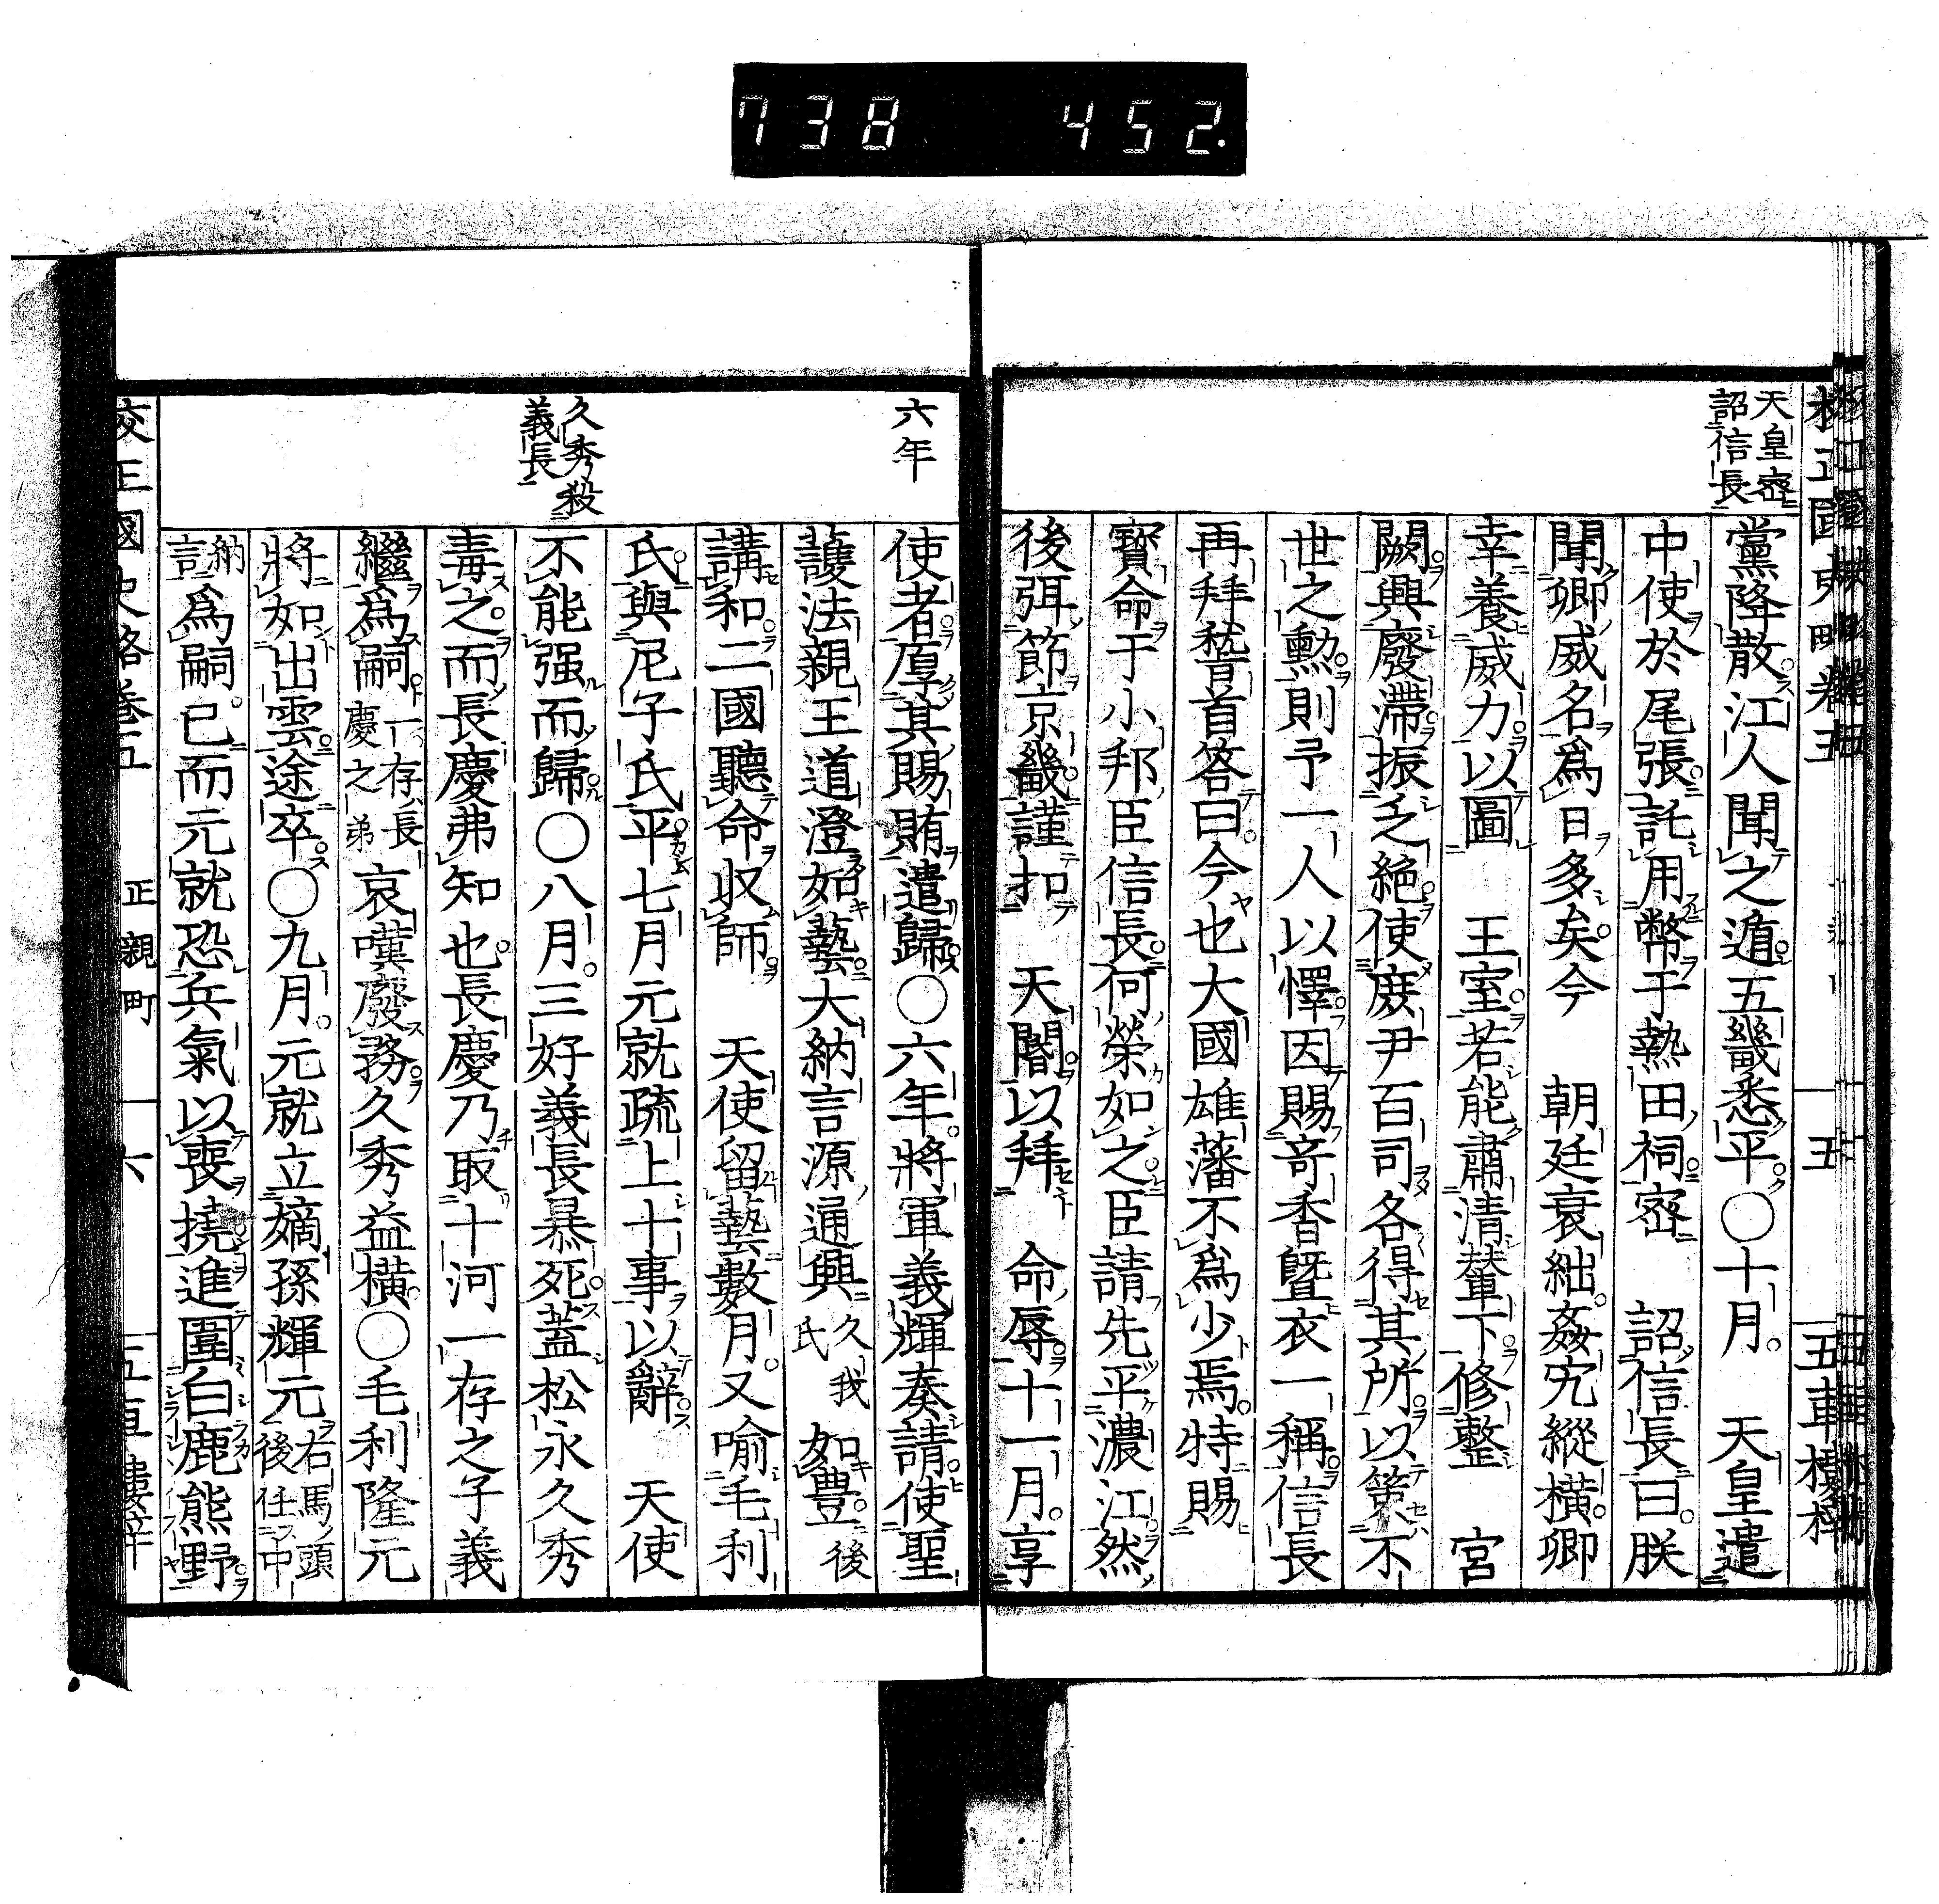 738 452.
天皇密
詔信長
黨降散江人聞之遁五畿悉平〇十月 天皇遣
中使於尾張託用幣于熱田祠密 詔信長曰朕
聞卿威名爲日多矣今 朝廷衰絀姦宄縱橫卿
幸養威力以圖 王室若能肅清輦下修整 宮
闕興廢滯振乏絕使庶尹百司各得其所以策不
世之勲則予一人以懌因賜奇香曁衣一稱信長
再拜稽首答曰今也大國雄藩不爲少焉特賜
寳命于小邦臣信長何榮如之臣請先平濃江然
後弭節京畿謹扣 天閽以拜 命辱十一月享
六年
久秀殺
義長
使者厚其賜賄遣歸〇六年將軍義輝奏請使聖
護法親王道澄如藝大納言源通興久我氏如豊後
講和二國聽命収師 天使留藝數月又喩毛利
氏與尼子氏平七月元就疏上十事以辭 天使
不能强而歸〇八月三好義長暴死蓋松永久秀
毒之而長慶弗知也長慶乃取十河一存之子義
繼爲嗣一存長慶之弟哀嘆廢務久秀益橫〇毛利隆元
將如出雲途卒〇九月元就立嫡孫輝元右馬頭後任中
納言爲嗣已而元就恐兵氣以喪撓進圍白鹿熊野
校正國史略卷五 正親町 六 五車樓梓